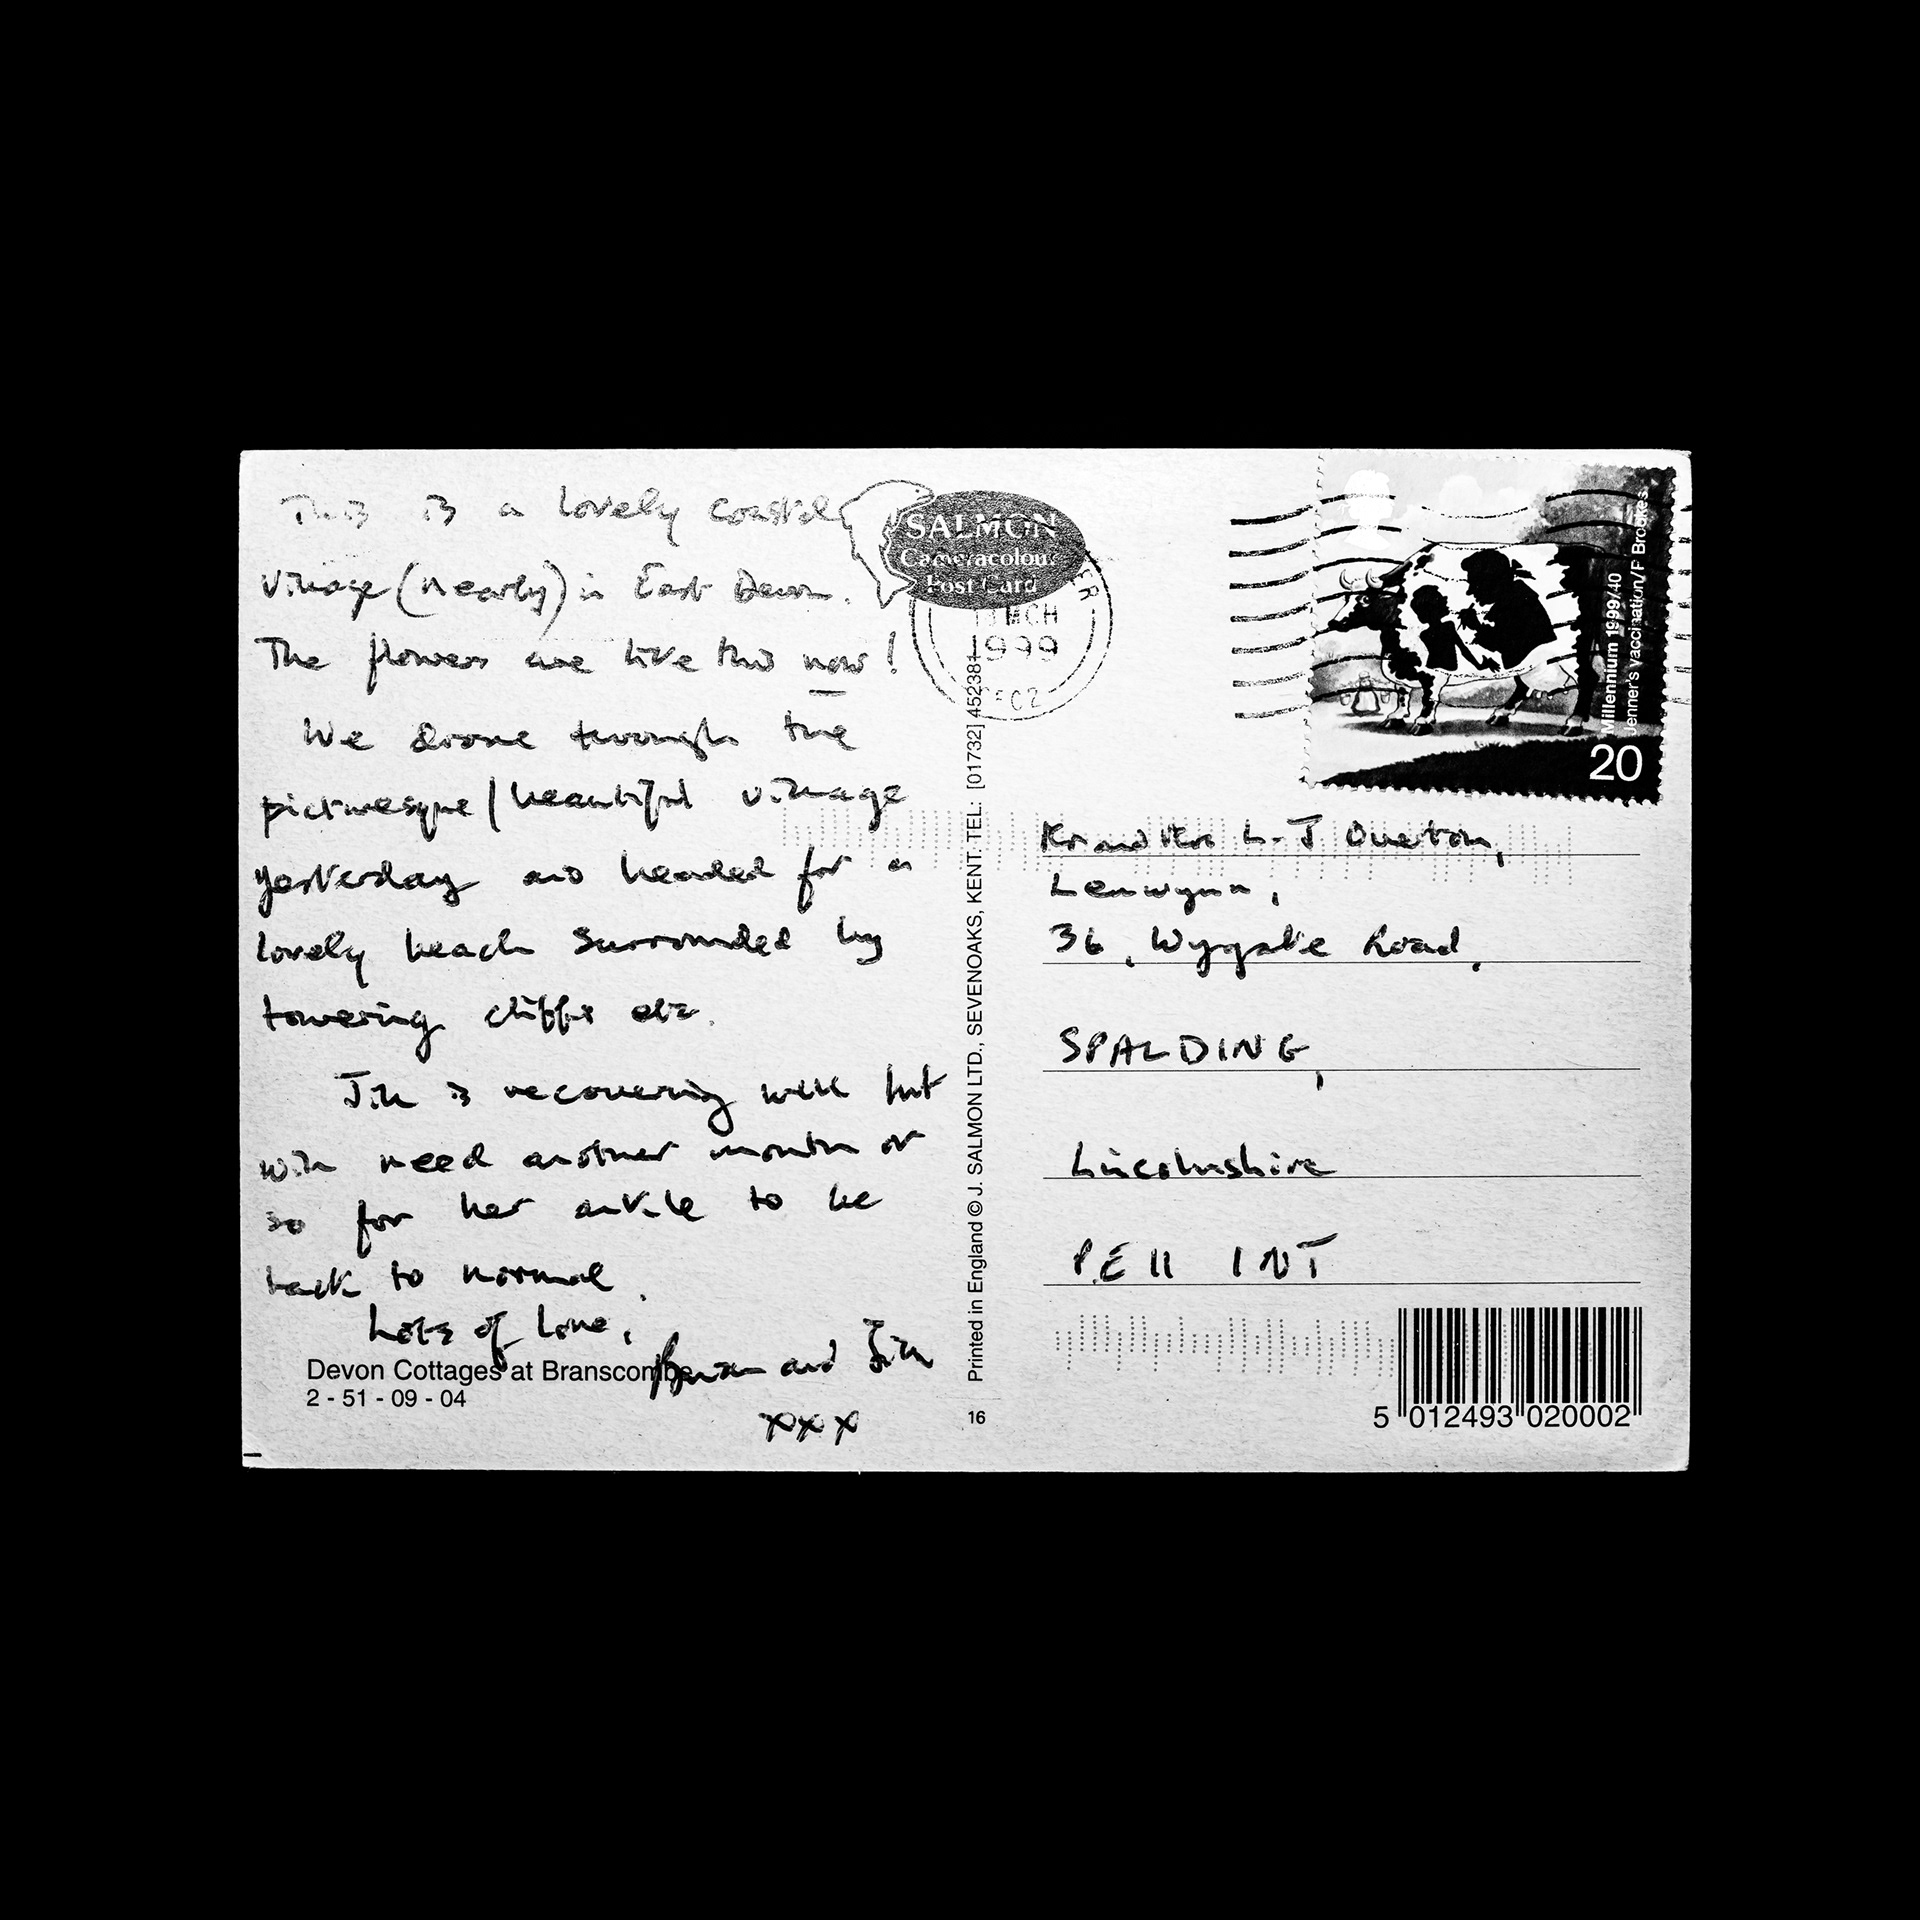 This is a lovely coastal
village (nearly) in East Devon.
The flowers are like this now!
We drove through the
picturesque/beautiful village
yesterday and headed for a
lovely beach surrounded by
towering cliffs etc.
Jill is recovering well but
will need another month or
so for her ankle to be
back to normal.
Lots of Love,
and Jill
xxx
Devon Cottages at Branscombe
2 - 51 - 09 - 04
SALMON
Cameracolour
Post Card
MCH
1999
Printed in England © J. SALMON LTD., SEVENOAKS, KENT. TEL: [01732] 452381
16
Millennium 1999/40
Jenner's vaccination/F Brookes
20
Mr and Mrs L-J Overton,
Lenwynn,
36, Wygate Road,
SPALDING,
Lincolnshire
PE11 1NT
5 012493 020002